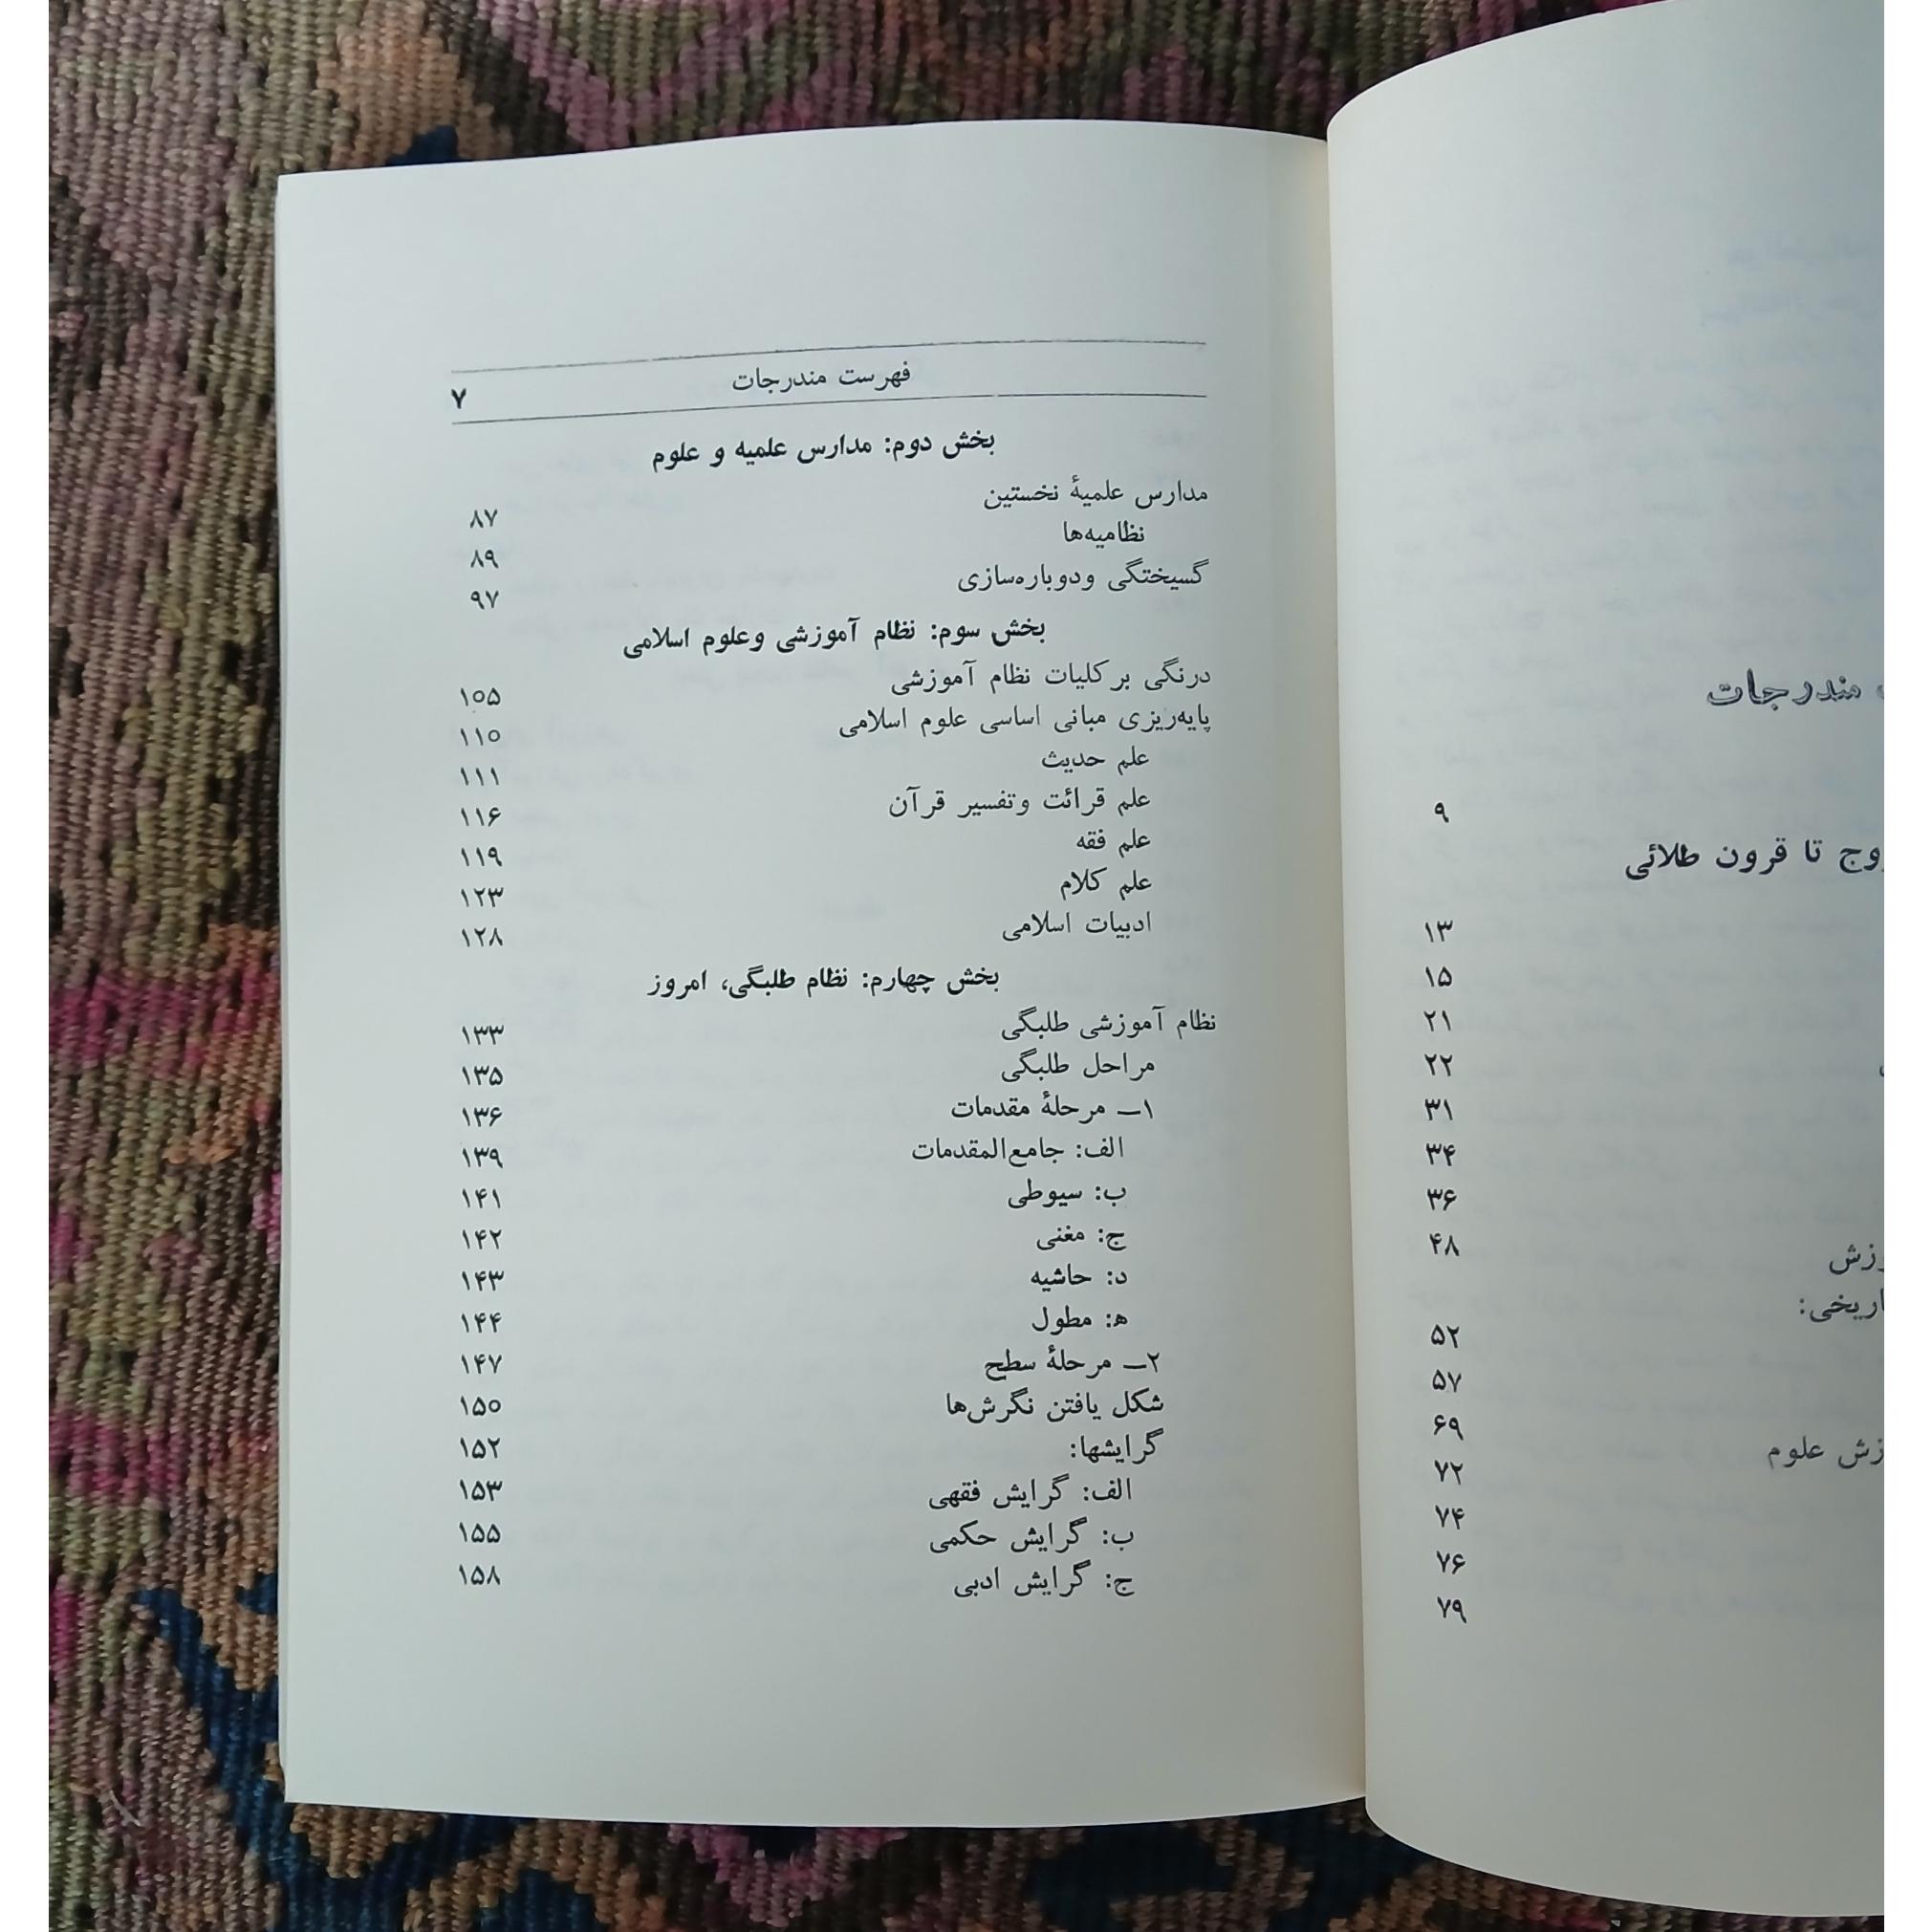 مندرجات
۹
تا قرون طلائی
۱۳
۱۵
۲۱
۲۲
۳۱
۳۴
۳۶
۴۸
۵۲
۵۷
۶۹
علوم
۷۲
۷۴
۷۶
۷۹
فهرست مندرجات ۷
بخش دوم: مدارس علمیه و علوم
مدارس علمیهٔ نخستین ۸۷
نظامیه‌ها ۸۹
گسیختگی ودوباره‌سازی ۹۷
بخش سوم: نظام آموزشی وعلوم اسلامی
درنگی بر کلیات نظام آموزشی ۱۰۵
پایه‌ریزی مبانی اساسی علوم اسلامی ۱۱۰
علم حدیث ۱۱۱
علم قرائت وتفسیر قرآن ۱۱۶
علم فقه ۱۱۹
علم کلام ۱۲۳
ادبیات اسلامی ۱۲۸
بخش چهارم: نظام طلبگی، امروز
نظام آموزشی طلبگی ۱۳۳
مراحل طلبگی ۱۳۵
۱ــ مرحلهٔ مقدمات ۱۳۶
الف: جامع‌المقدمات ۱۳۹
ب: سیوطی ۱۴۱
ج: مغنی ۱۴۲
د: حاشیه ۱۴۳
ه: مطول ۱۴۴
۲ــ مرحلهٔ سطح ۱۴۷
شکل یافتن نگرش‌ها ۱۵۰
گرایشها: ۱۵۲
الف: گرایش فقهی ۱۵۳
ب: گرایش حکمی ۱۵۵
ج: گرایش ادبی ۱۵۸